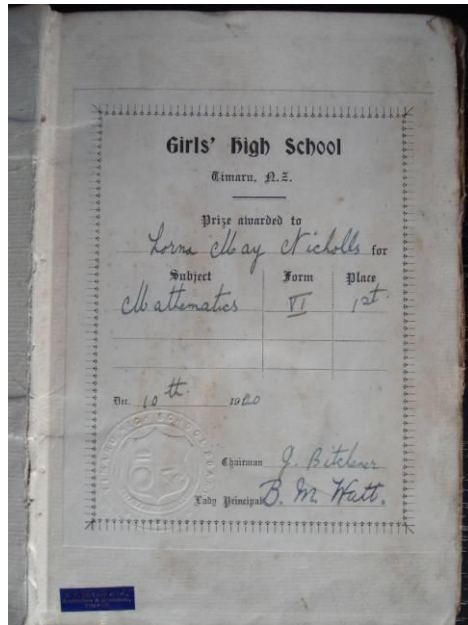 Girls' High School
Timaru, N.Z.
Prize awarded to
Lorna May Nicholls for
Subject Form Place
Mathematics VI 1st
Dec. 10th 1920
Chairman
Lady Principal B. M. Watt.